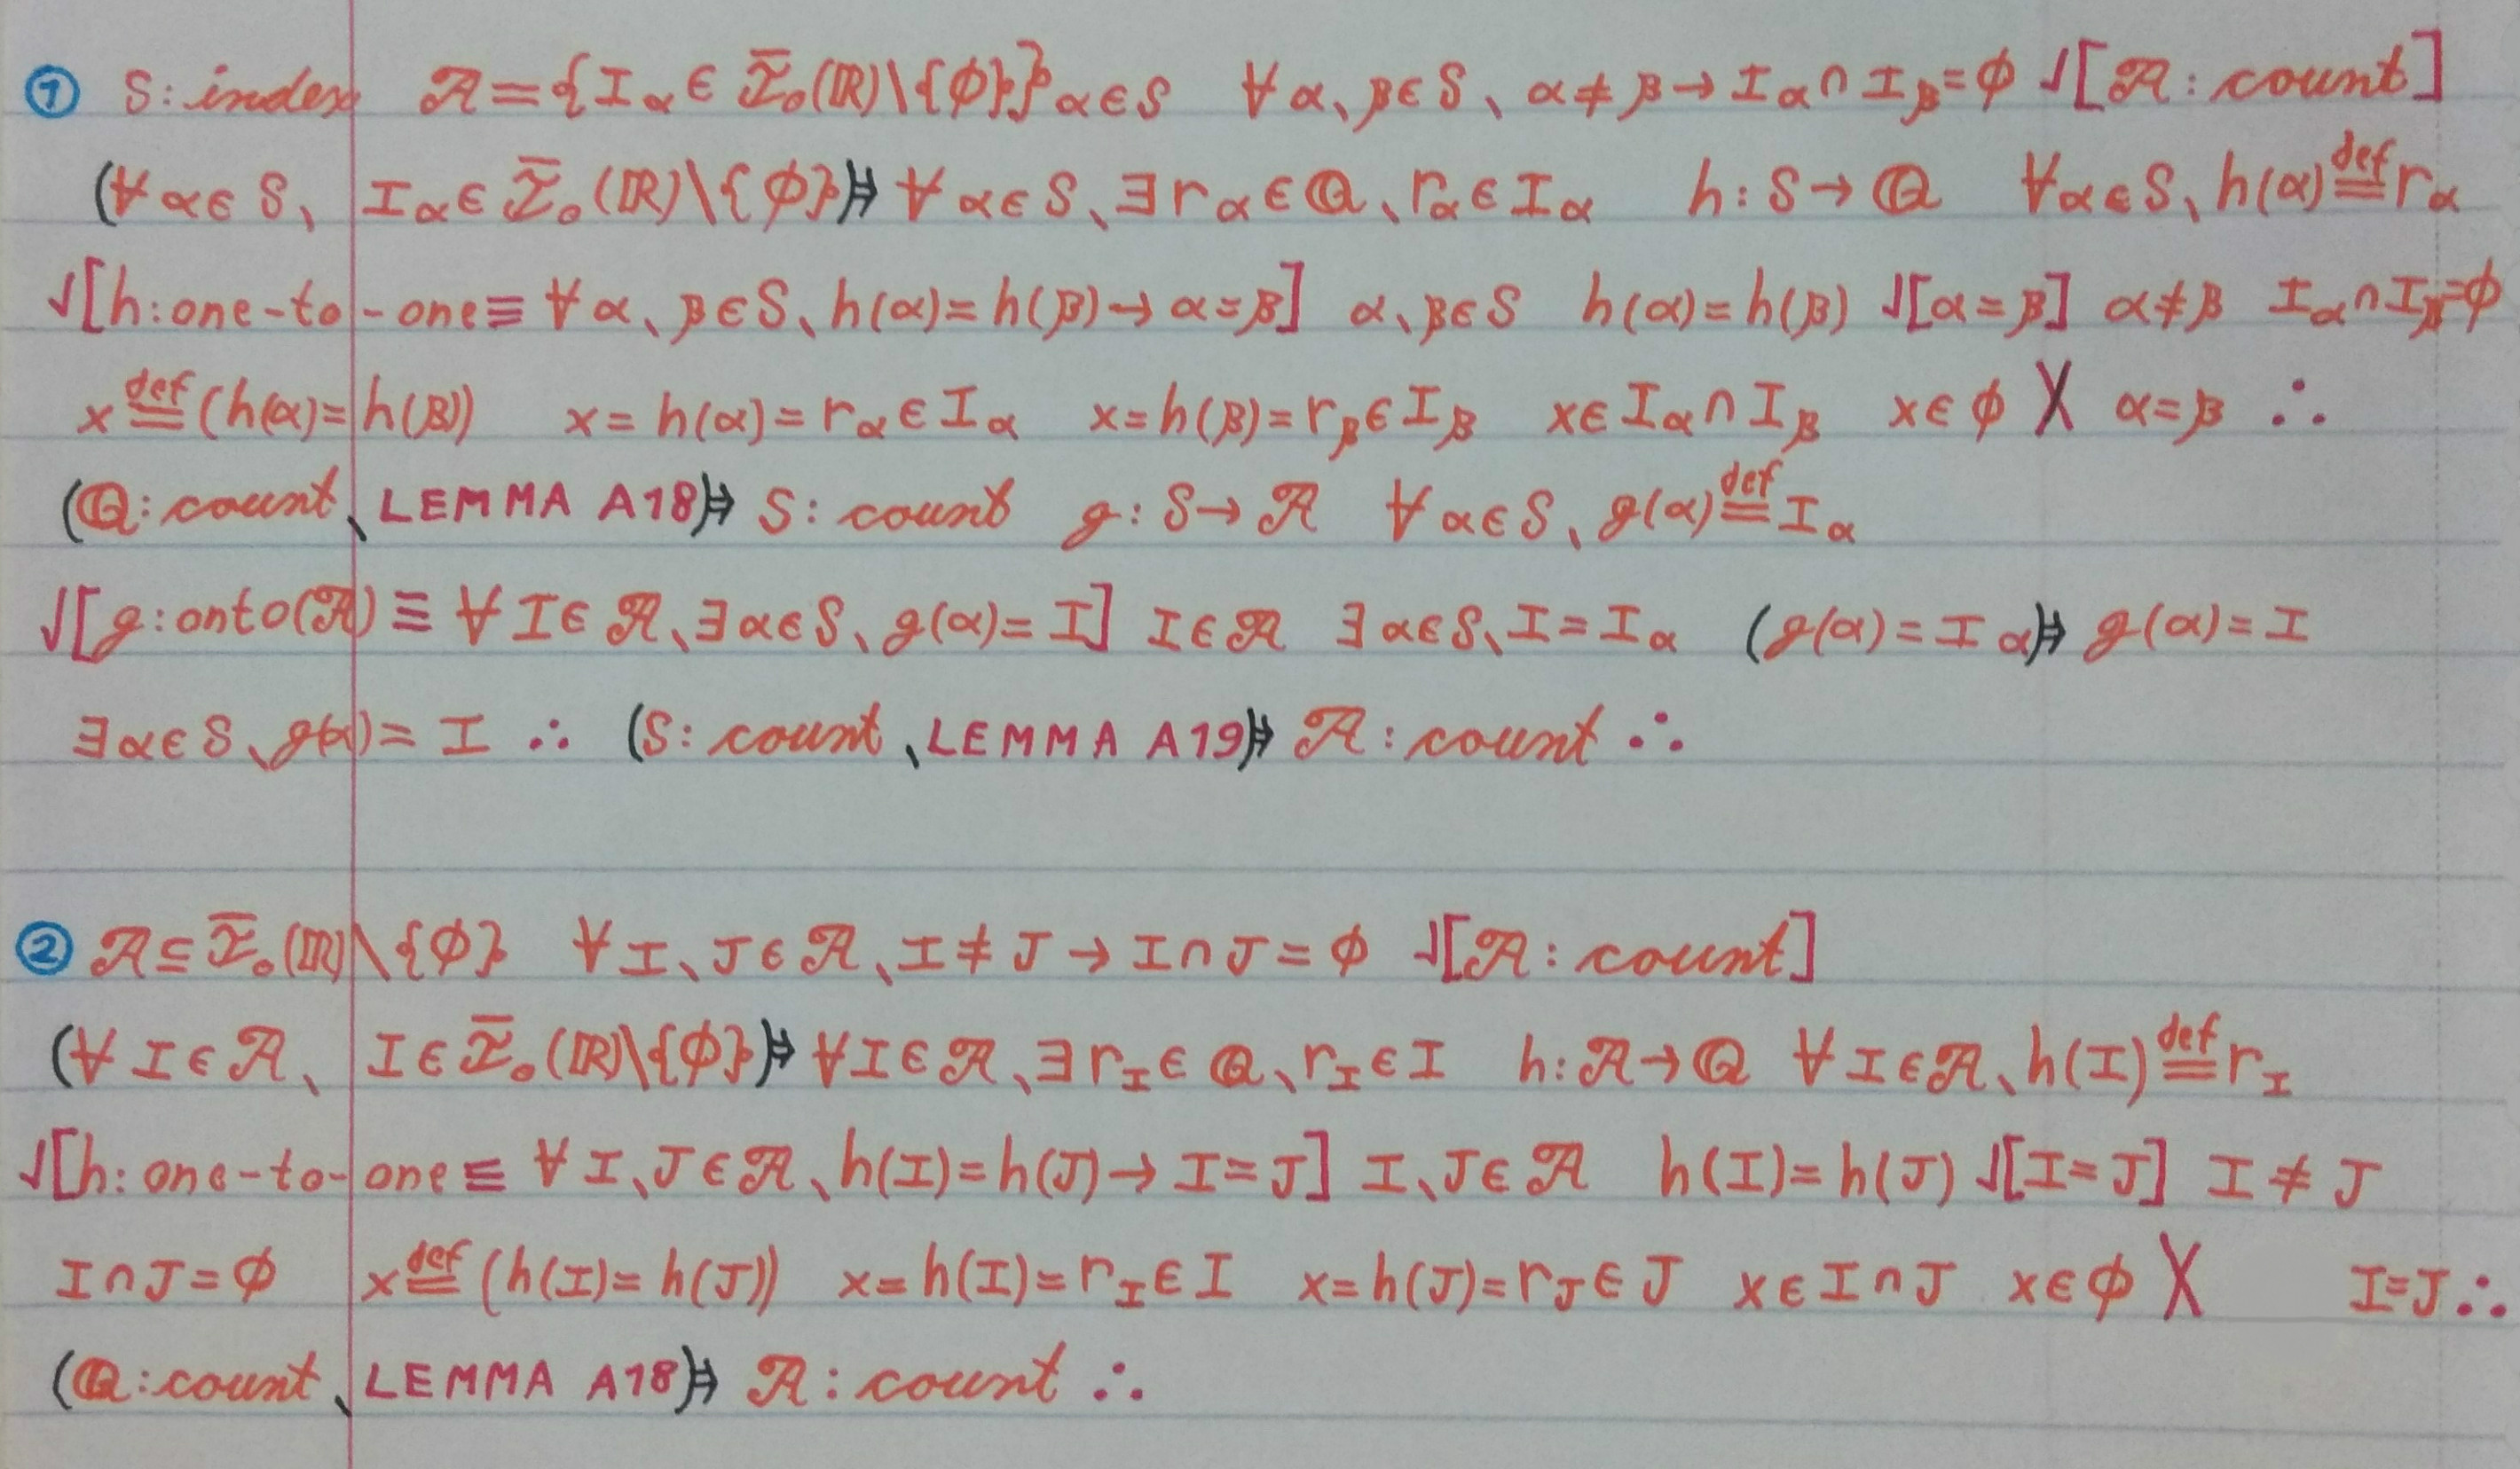 ① S: index 𝒜={I_α ∈ ℐ̅_o(ℝ)\{ϕ}}_α∈S ∀α、β∈S、α≠β→I_α∩I_β=ϕ √[𝒜: count]
(∀α∈S、 I_α∈ ℐ̅_o(ℝ)\{ϕ})⇒ ∀α∈S、∃r_α∈ℚ、r_α∈I_α h: S→ℚ ∀α∈S、h(α)≝r_α
√[h: one-to-one≡ ∀α、β∈S、h(α)=h(β)→α=β] α、β∈S h(α)=h(β) √[α=β] α≠β I_α∩I_β=ϕ
x≝(h(α)=h(β)) x=h(α)=r_α∈I_α x=h(β)=r_β∈I_β x∈I_α∩I_β x∈ϕ X α=β ∴
(ℚ: count、LEMMA A18)⇒ S: count g: S→𝒜 ∀α∈S、g(α)≝I_α
√[g: onto(𝒜)≡ ∀I∈𝒜、∃α∈S、g(α)=I] I∈𝒜 ∃α∈S、I=I_α (g(α)=I_α)⇒ g(α)=I
∃α∈S、g(α)=I ∴ (S: count、LEMMA A19)⇒ 𝒜: count ∴
② 𝒜⊆ℐ̅_o(ℝ)\{ϕ} ∀I、J∈𝒜、I≠J→I∩J=ϕ √[𝒜: count]
(∀I∈𝒜、 I∈ℐ̅_o(ℝ)\{ϕ})⇒ ∀I∈𝒜、∃r_I∈ℚ、r_I∈I h: 𝒜→ℚ ∀I∈𝒜、h(I)≝r_I
√[h: one-to-one≡ ∀I、J∈𝒜、h(I)=h(J)→I=J] I、J∈𝒜 h(I)=h(J) √[I=J] I≠J
I∩J=ϕ x≝(h(I)=h(J)) x=h(I)=r_I∈I x=h(J)=r_J∈J x∈I∩J x∈ϕ X I=J∴
(ℚ: count、LEMMA A18)⇒ 𝒜: count ∴